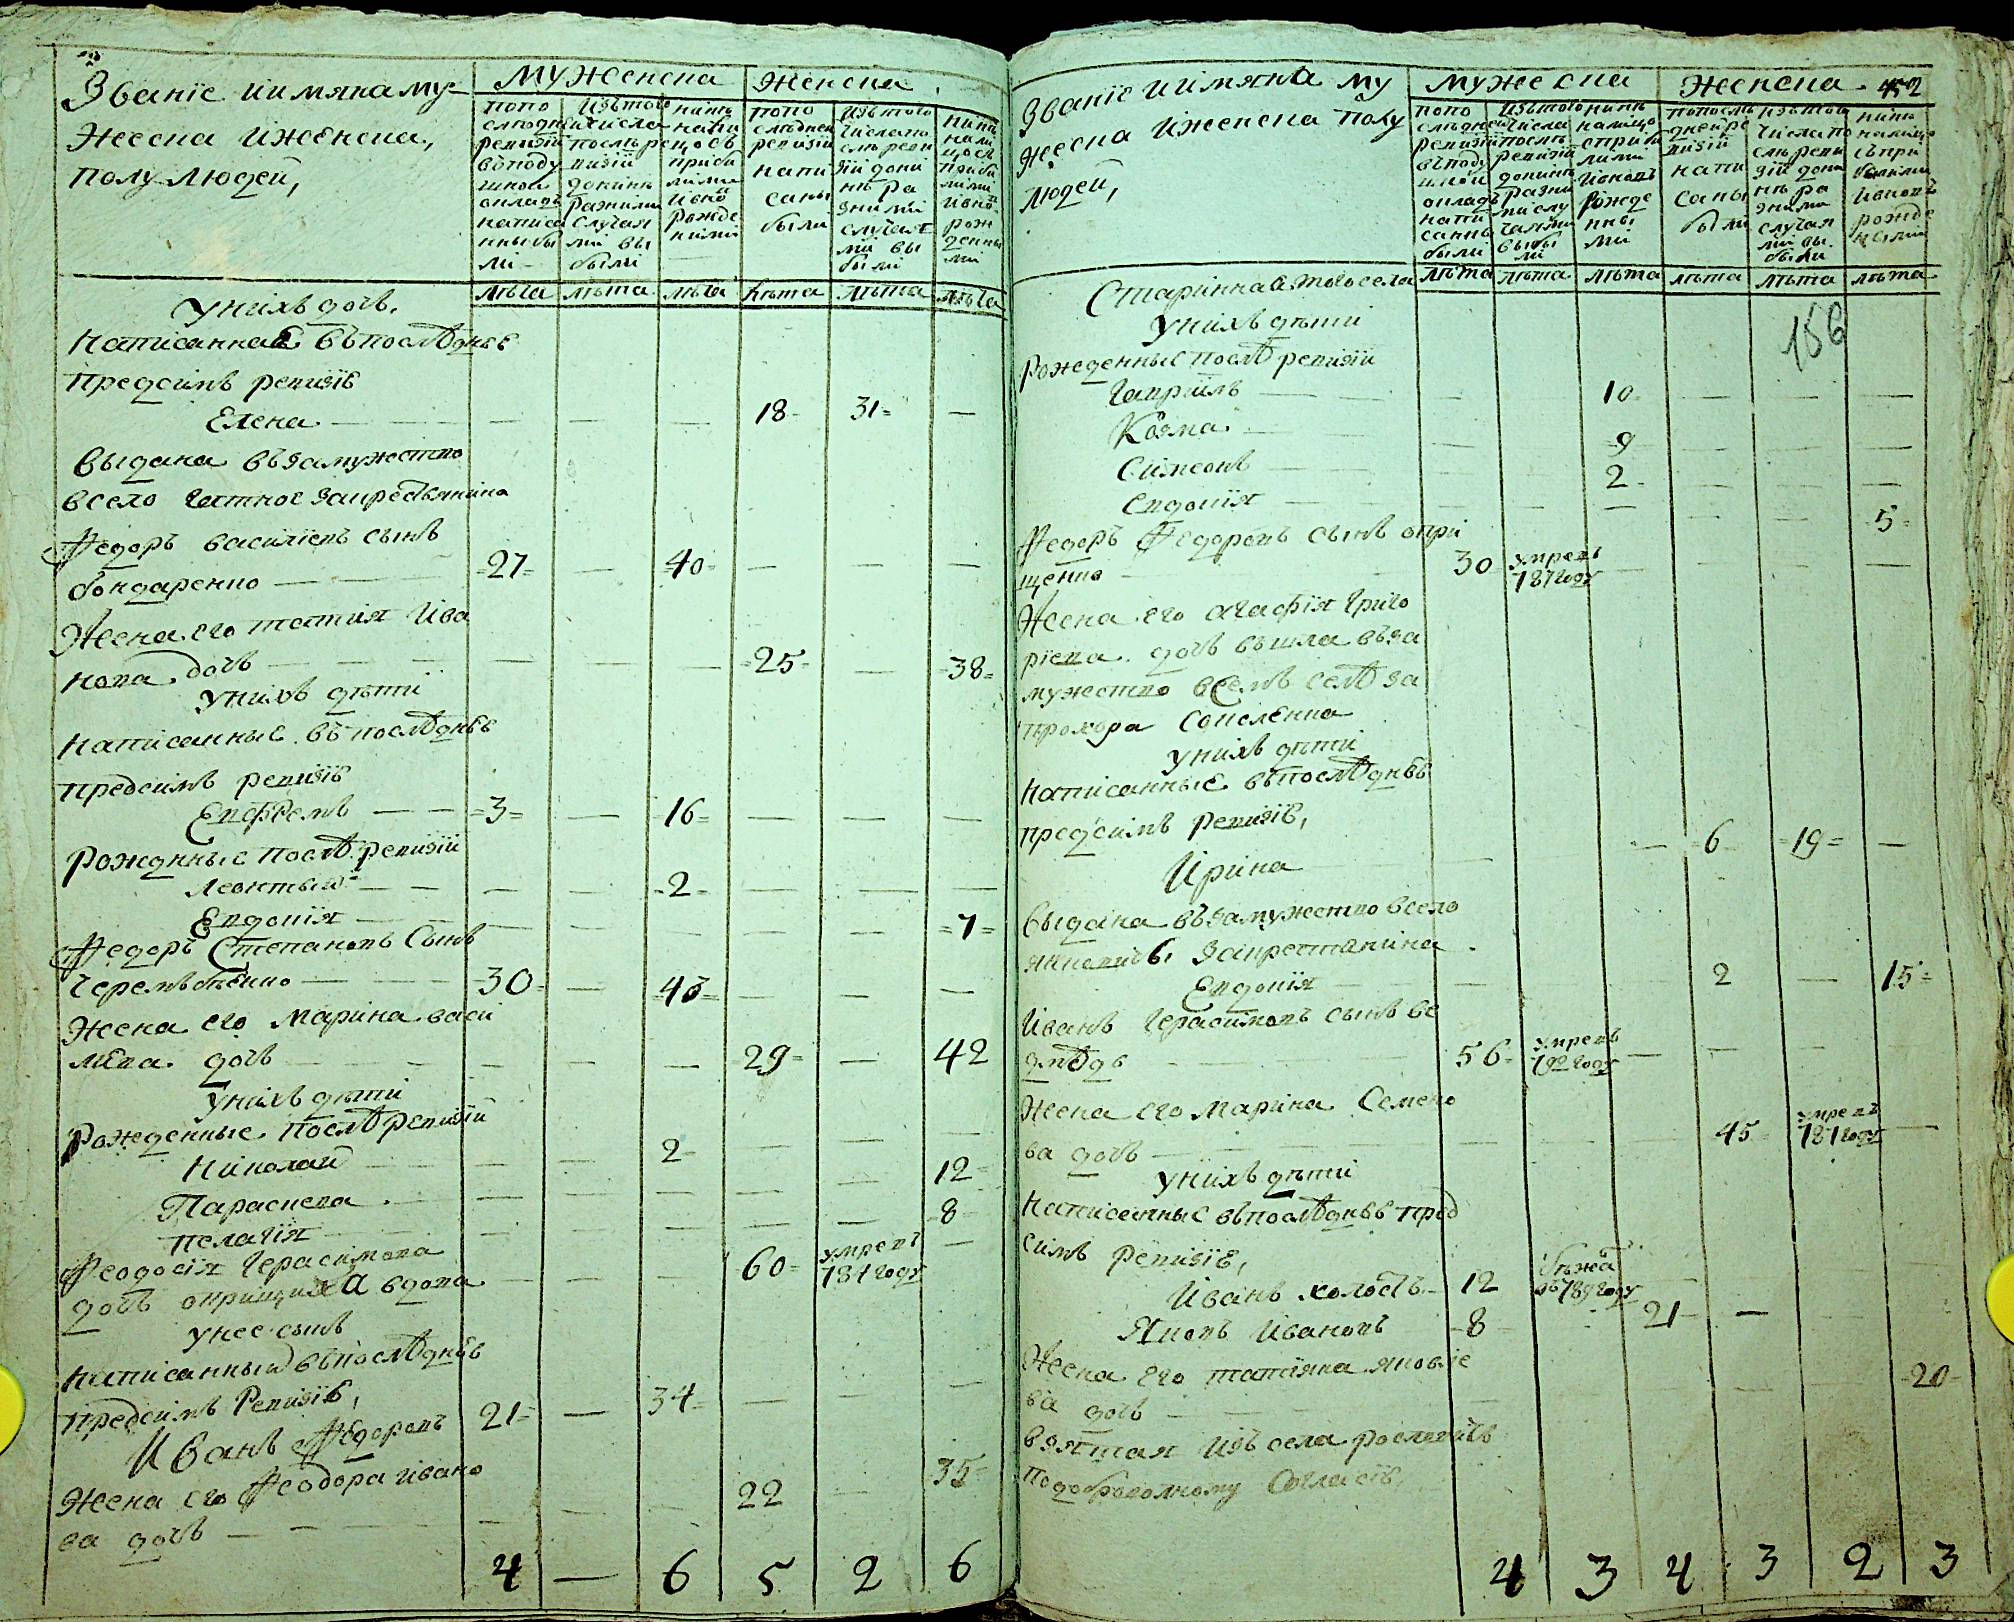 Званіе иимянаму-
жеска иженска,
полу людей,
мужеска
женска
попо
следней
ревизіи
вподу
шной
окладъ
написа
нныбы
ли
изътого
числа
послѣре
визіи
донынѣ
разными
случая
ми вы
были
нынѣ
нали
цососъ
прибы
лими
ивно
рожде
ними
попо
следней
ревизіи
напи
саны
были
изътого
числапо
слѣреви
зіи доны
нѣ ра
зними
случая
ми вы
были
нынѣ
нали
цосъ
прибы
лими
ивно
рож
денны
ми
лѣта лѣта лѣта лѣта лѣта лѣта
унихъ дочь,
написанная въпослѣднѣе
предсимъ ревизіе
Елена — — — — 18- 31- —
выдана въ замужство
всело гатное закрестьянина
Федоръ василіевъ сынъ
бондаренко — 27- — 40- — — —
Жена его татия ива
нова дочь — — — — 25- — 38-
унихъ дѣти
написанные въпослѣднѣе
предсимъ ревизіе
Евфремъ — — 3- — 16- — — —
рожднные послѣ ревизіи
леонтыи — — — — 2- — — —
Евдокія — — — — — — — 7-
Федоръ Степановъ Сынъ
Черемъсѣнко — 30- — 43- — — —
Жена его Марина васи
лева дочь — — — — 29- — 42
унихъ дѣти
Рожденные послѣ ревизіи
николай — — — 2- — — —
Параскева — — — — — — 12-
пелагія — — — — — — 8-
Феодосія Герасимова
дочь окрищиха вдова — — — 60- умревъ 781 году —
унее сынъ
написанный въпослѣднѣе
предсимъ Ревизіе,
Иванъ Федоровъ 21- — 34- — — —
Жена его Феодора ивано
ва дочь — — — — 22 — 35-
4 — 6 5 2 6
Званіе иимяна му
жеска иженска полу
людей,
мужеска
женска 452
попо
следней
ревизіи
въподу
шной
окладъ
напи
санны
были
изътого
числа
послѣ
ревизіи
донынѣ
разни
мислу
чаями
выбы
ли
нынѣ
налицо
сприбы
лими
ивновъ
рожде
нны
ми
попослѣ
дней ре
визіи
напи
саны
были
изътого
числа по
слѣ реви
зіи доны
нѣ ра
зними
случая
ми вы
были
нынѣ
налицо
съпри
былими
ивновъ
рожде
нными
лѣта лѣта лѣта лѣта лѣта лѣта
Стариннаятогосела
унихъ дѣти
156
Рожденные послѣ ревизіи
Гаврилъ — — — 10- — — —
Козма — — — 9 — — —
Симеонъ — — — 2- — — —
Евдокія — — — — — — 5-
Федоръ Федоровъ сынъ окри
щенко — 30 умревъ 787 году — — — —
Жена его агафія Григо
ріева дочь вышла въза
мужество вСемъ селѣ за
прохора
унихъ дѣти
написанные въпослѣднѣе
предсимъ ревизіе,
Ирина — — 6 -19- —
выдана въ замужство всело
закрестянина
Евдокія — — — — 2 — 15-
Иванъ Герасимовъ сынъ ве
дмѣдь — 56- умревъ 792 году — — — —
Жена его Марина Семено
ва дочь — — — — 45- умревъ 781 году —
унихъ дѣти
написанные въпослѣднѣе пред
симъ Ревизіе,
Иванъ холостъ — 12 бѣжа въ789году —
Яковъ Ивановъ -8- — 21- —
Жена его татіяна яковле
ва дочь — — — — — — -20-
взятая изъ села рославичъ
подобровольному согласію,
4 3 4 3 2 3